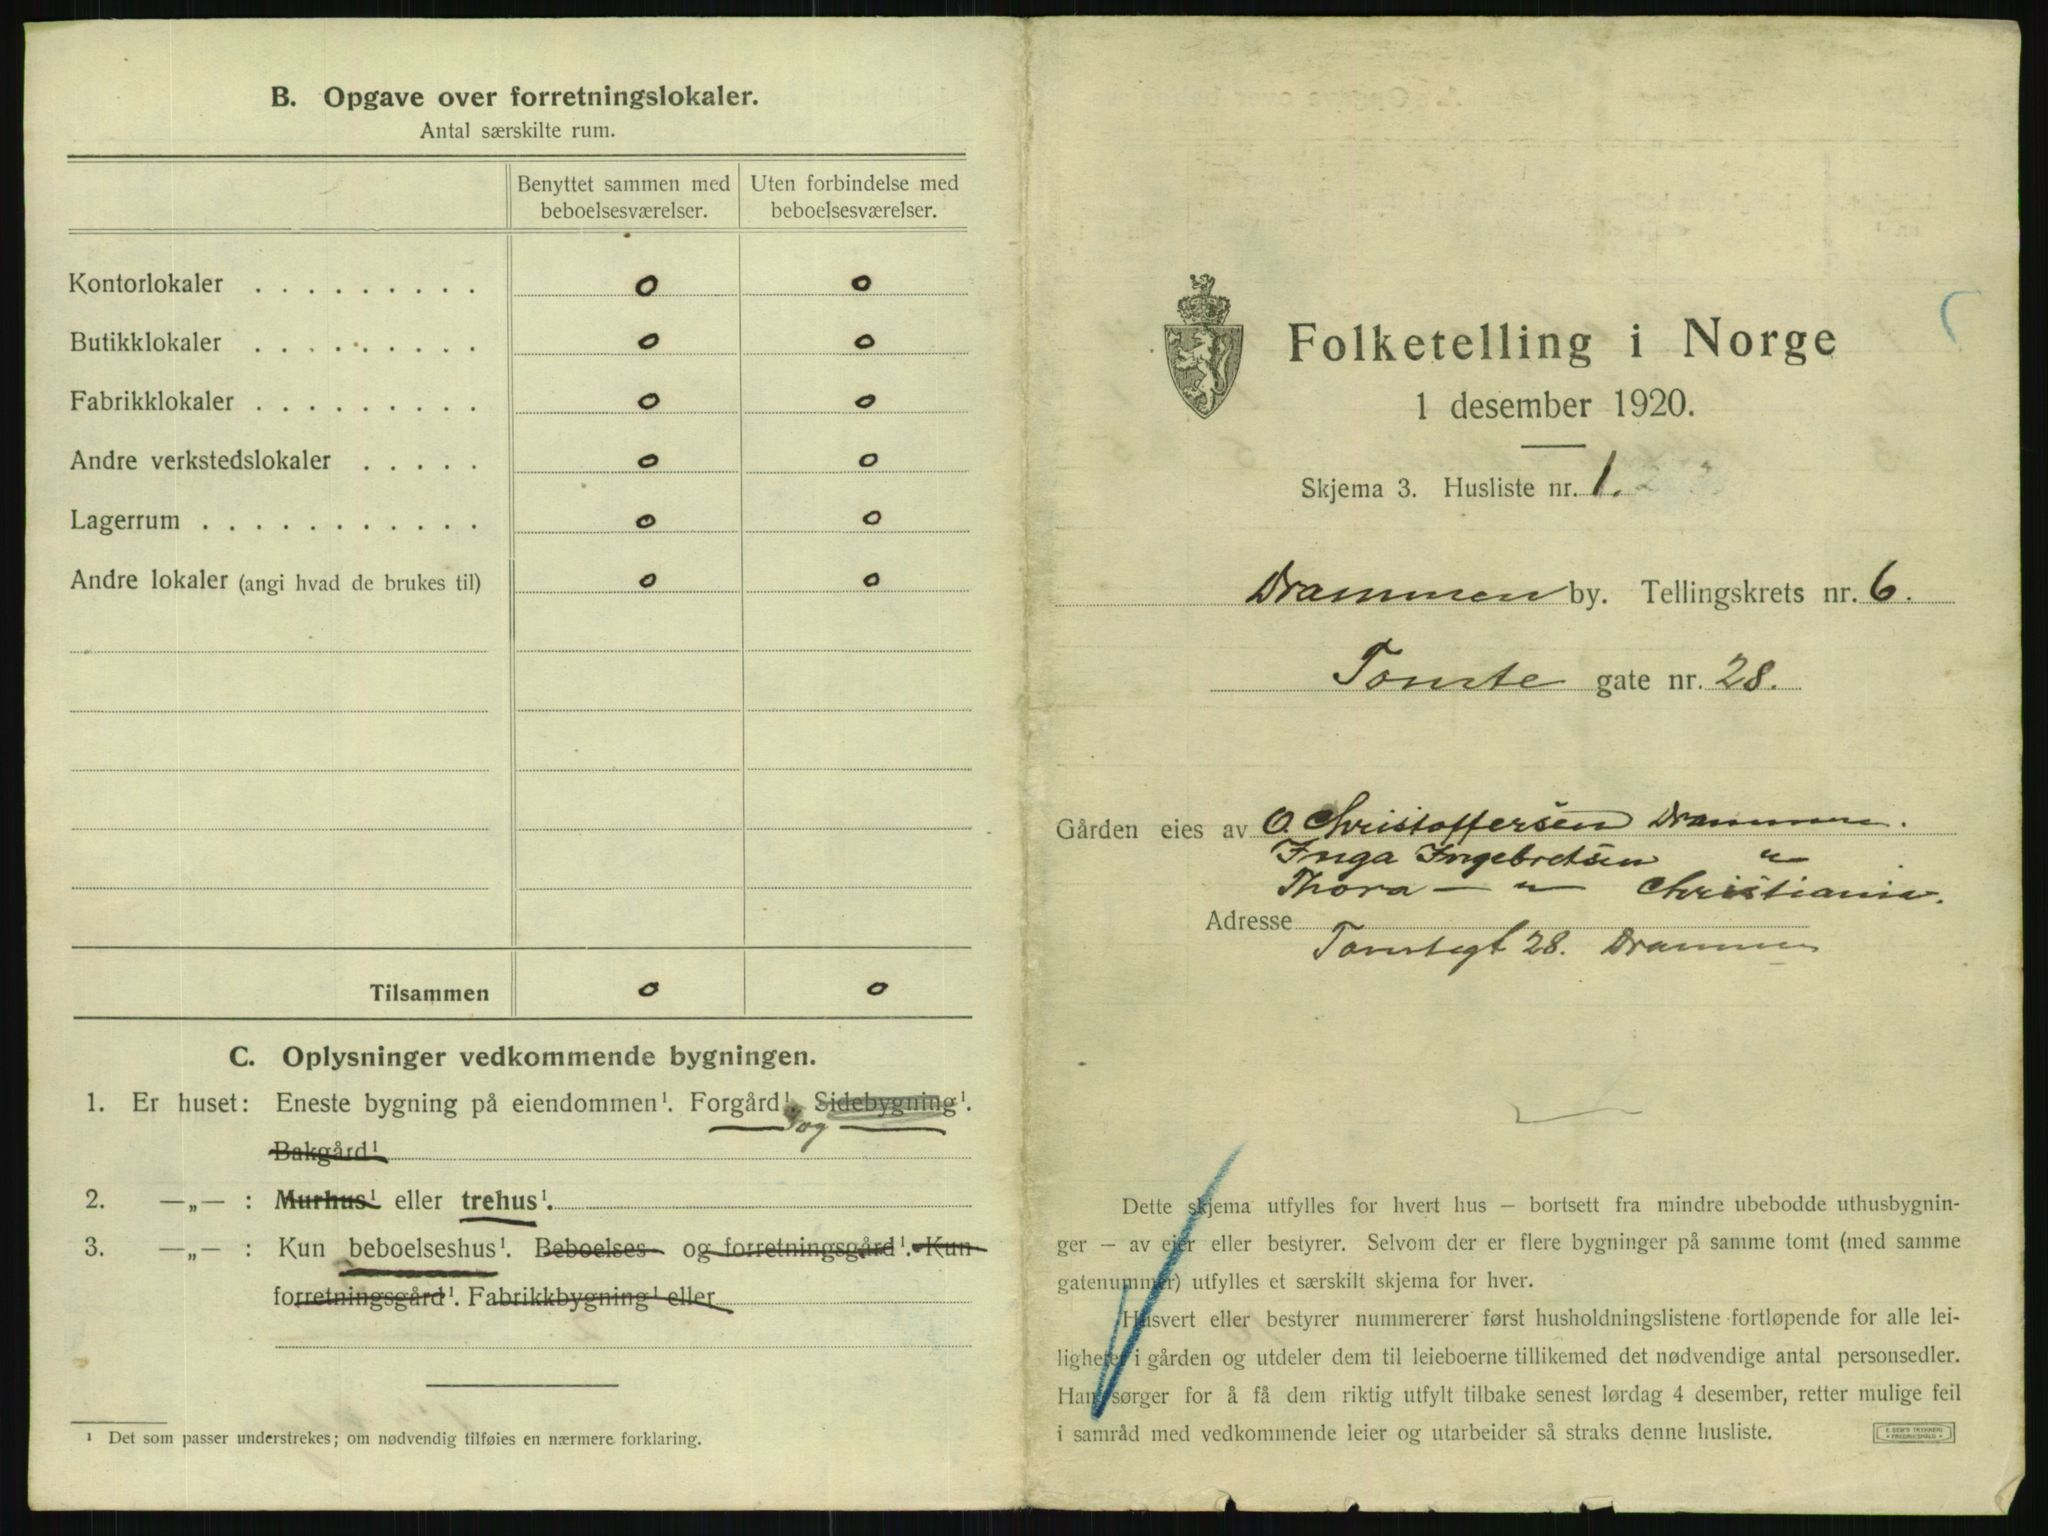 B. Opgave over forretningslokaler.
Antal særskilte rum.
Benyttet sammen med beboelsesværelser.
Uten forbindelse med beboelsesværelser.
Kontorlokaler . . . . . . . . . 0 0
Butikklokaler . . . . . . . . . 0 0
Fabrikklokaler . . . . . . . . . 0 0
Andre verkstedslokaler . . . . . 0 0
Lagerrum . . . . . . . . . . . 0 0
Andre lokaler (angi hvad de brukes til) 0 0
Tilsammen 0 0
C. Oplysninger vedkommende bygningen.
1. Er huset: Eneste bygning på eiendommen¹. Forgård¹. Sidebygning¹.
og
Bakgård¹
2. —„— : Murhus¹ eller trehus¹.
3. —„— : Kun beboelseshus¹. Beboelses- og forretningsgård¹. Kun
forretningsgård¹. Fabrikkbygning¹ eller
¹ Det som passer understrekes; om nødvendig tilføies en nærmere forklaring.
Folketelling i Norge
1 desember 1920.
Skjema 3. Husliste nr. 1.
Drammen by. Tellingskrets nr. 6.
Tomte gate nr. 28.
Gården eies av O. Christoffersen Drammen.
Inga Ingebretsen "
Thora — " — Christiania.
Adresse
Tomtegt 28. Drammen
Dette skjema utfylles for hvert hus — bortsett fra mindre ubebodde uthusbygnin-
ger — av eier eller bestyrer. Selvom der er flere bygninger på samme tomt (med samme
gatenummer) utfylles et særskilt skjema for hver.
Husvert eller bestyrer nummererer først husholdningslistene fortløpende for alle lei-
ligheter i gården og utdeler dem til leieboerne tillikemed det nødvendige antal personsedler.
Han sørger for å få dem riktig utfylt tilbake senest lørdag 4 desember, retter mulige feil
i samråd med vedkommende leier og utarbeider så straks denne husliste.
E. SEM'S TRYKKERI
FREDRIKSHALD